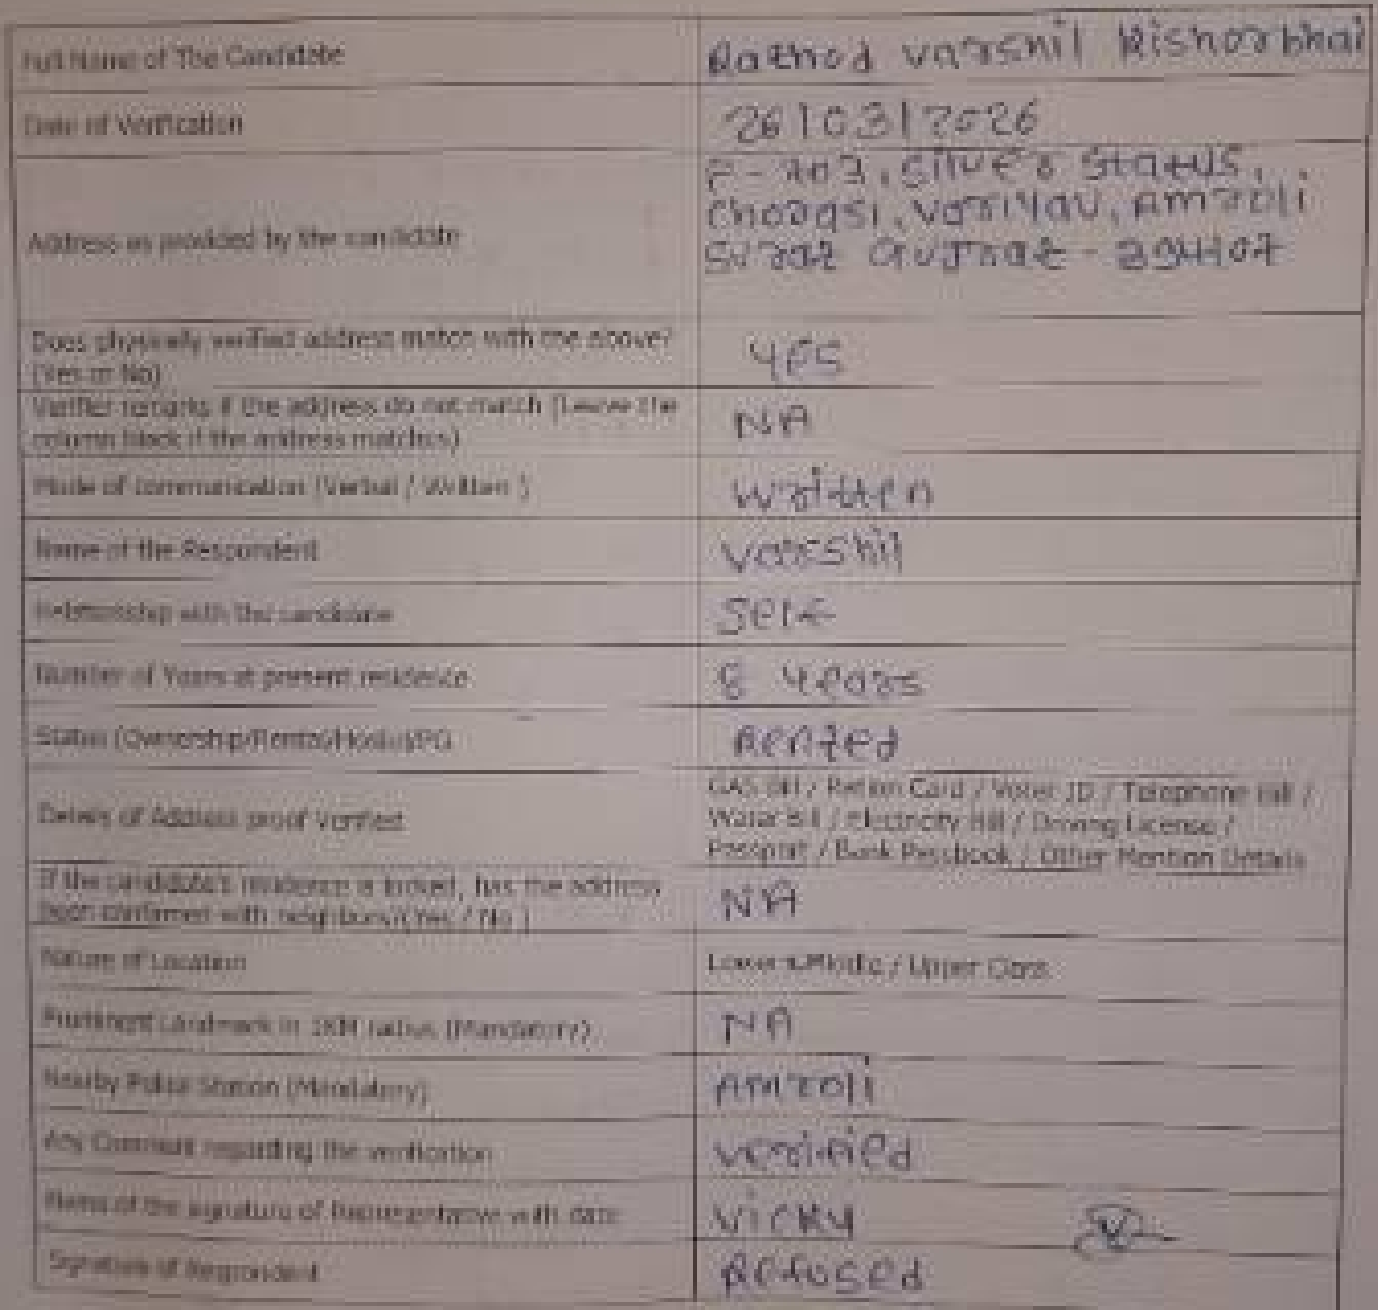 Full Name of The Candidate Rathod varshil Kishorbhai
Date of Verification 26/03/2026
F-703, Silver Status,
Address as provided by the candidate Chorasi, Variyav, Amroli
Surat Gujrat - 394107
Does physically verified address match with the above?
(Yes or No) YES
Verifier remarks if the address do not match (Leave the
column black if the address matches) NA
Mode of communication (Verbal / Written ) Written
Name of the Respondent Varshil
Relationship with the candidate Self
Number of Years at present residence 8 Years
Status (Ownership/Rental/Hostel/PG Rented
GAS Bill / Ration Card / Voter ID / Telephone Bill /
Details of Address proof Verified Water Bill / Electricity Bill / Driving License /
Passport / Bank Passbook / Other Mention Details
If the candidate's residence is locked, has the address
been confirmed with neighbors?(Yes / No ) NA
Nature of Location Lower / Middle / Upper Class
Prominent Landmark in 1KM radius (Mandatory) NA
Nearby Police Station (Mandatory) Amroli
Any Comment regarding the verification verified
Name of the signature of Representative with date Vicky
Signature of Respondent Refused